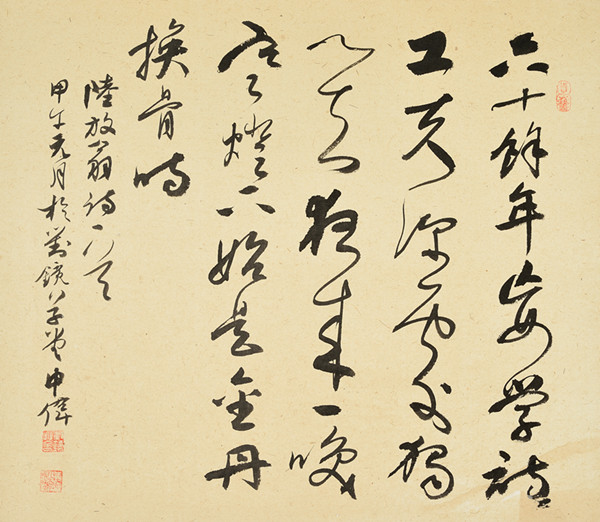 六十餘年妄學詩
工夫深處獨
心知夜來一咲
寒燈下始是金丹
換骨時
陸放翁詩一首
甲午元月於鏡堂申偉